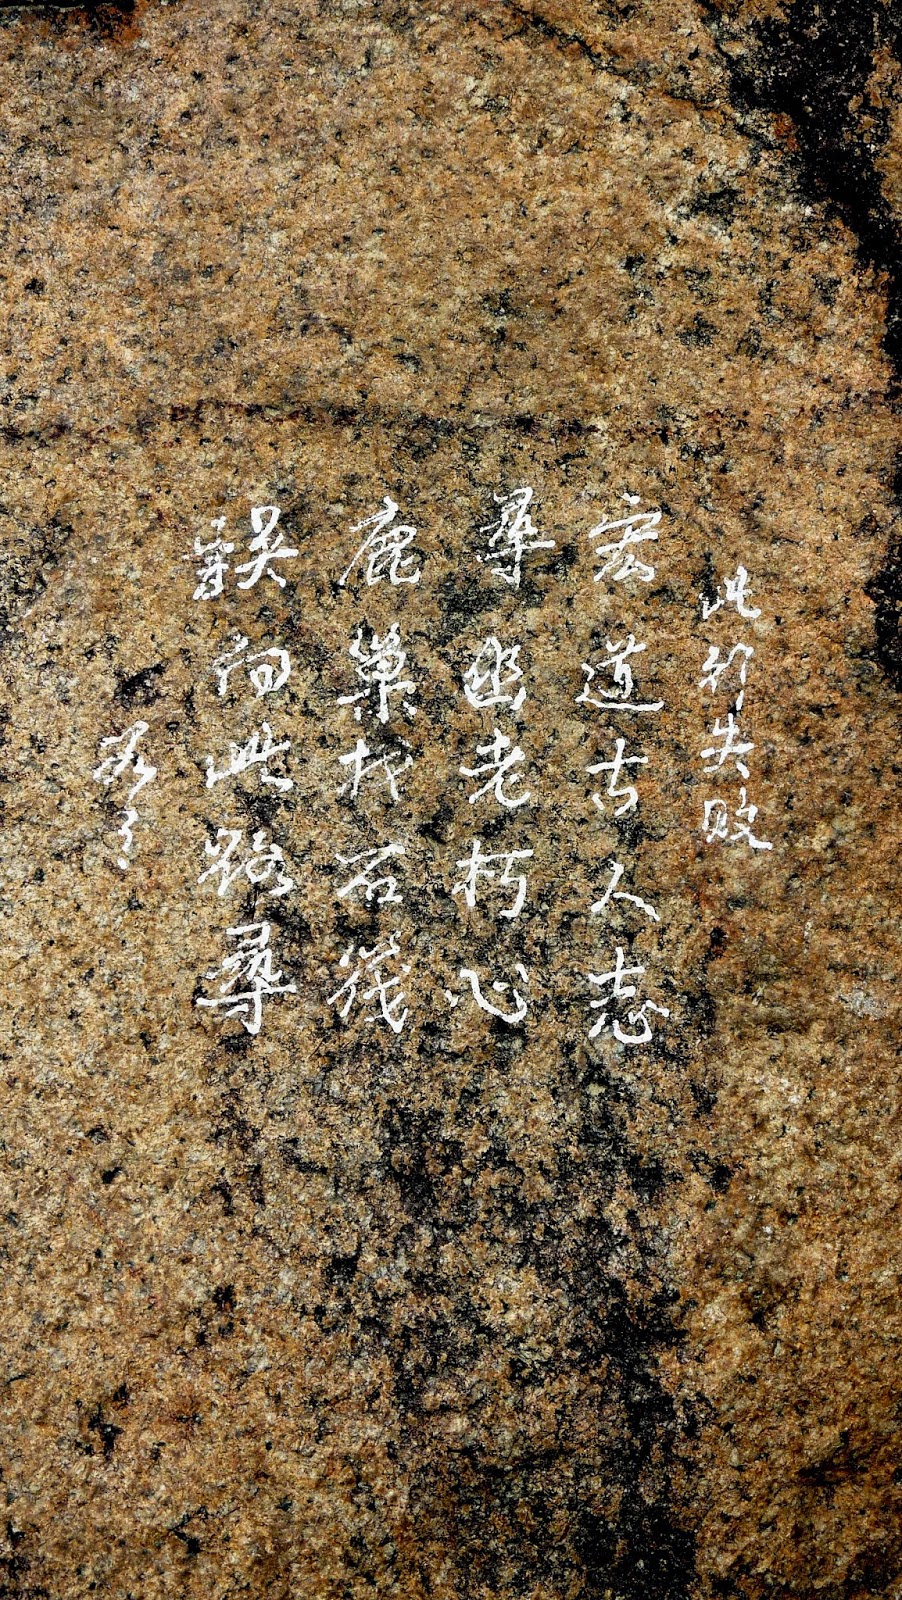 此行失敗
宏道古人志
尋幽老朽心
鹿巢找石筏
誤向此路尋